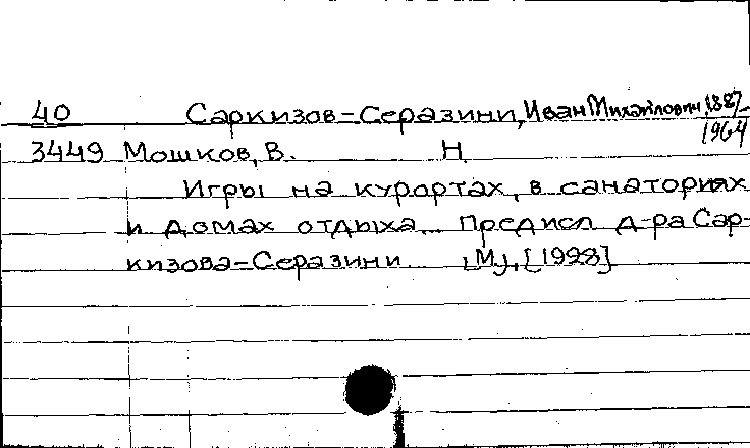 40 Саркизов-Серазини, Иван Михайлович, 1887-
1964
3449 Мошков, В. Н.
Игры на курортах, в санаториях
и домах отдыха... Предисл д-ра Сар-
кизова-Серазини М., [1928]